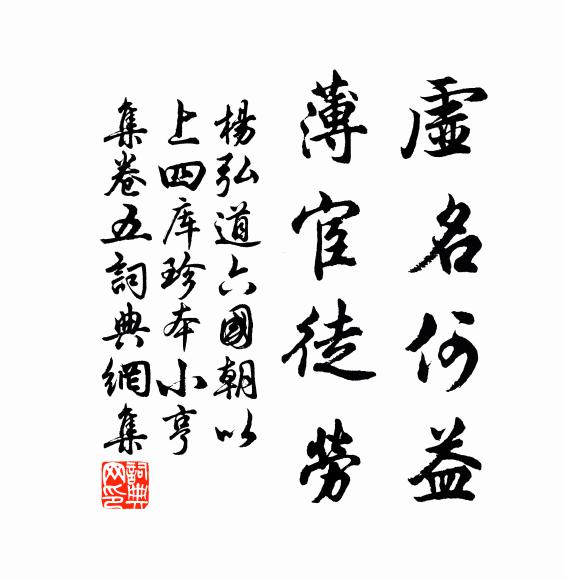 虛名何益
薄宦徒勞
楊弘道六國朝以
上四库珍本小亨
集卷五詞典網集
詞典网印